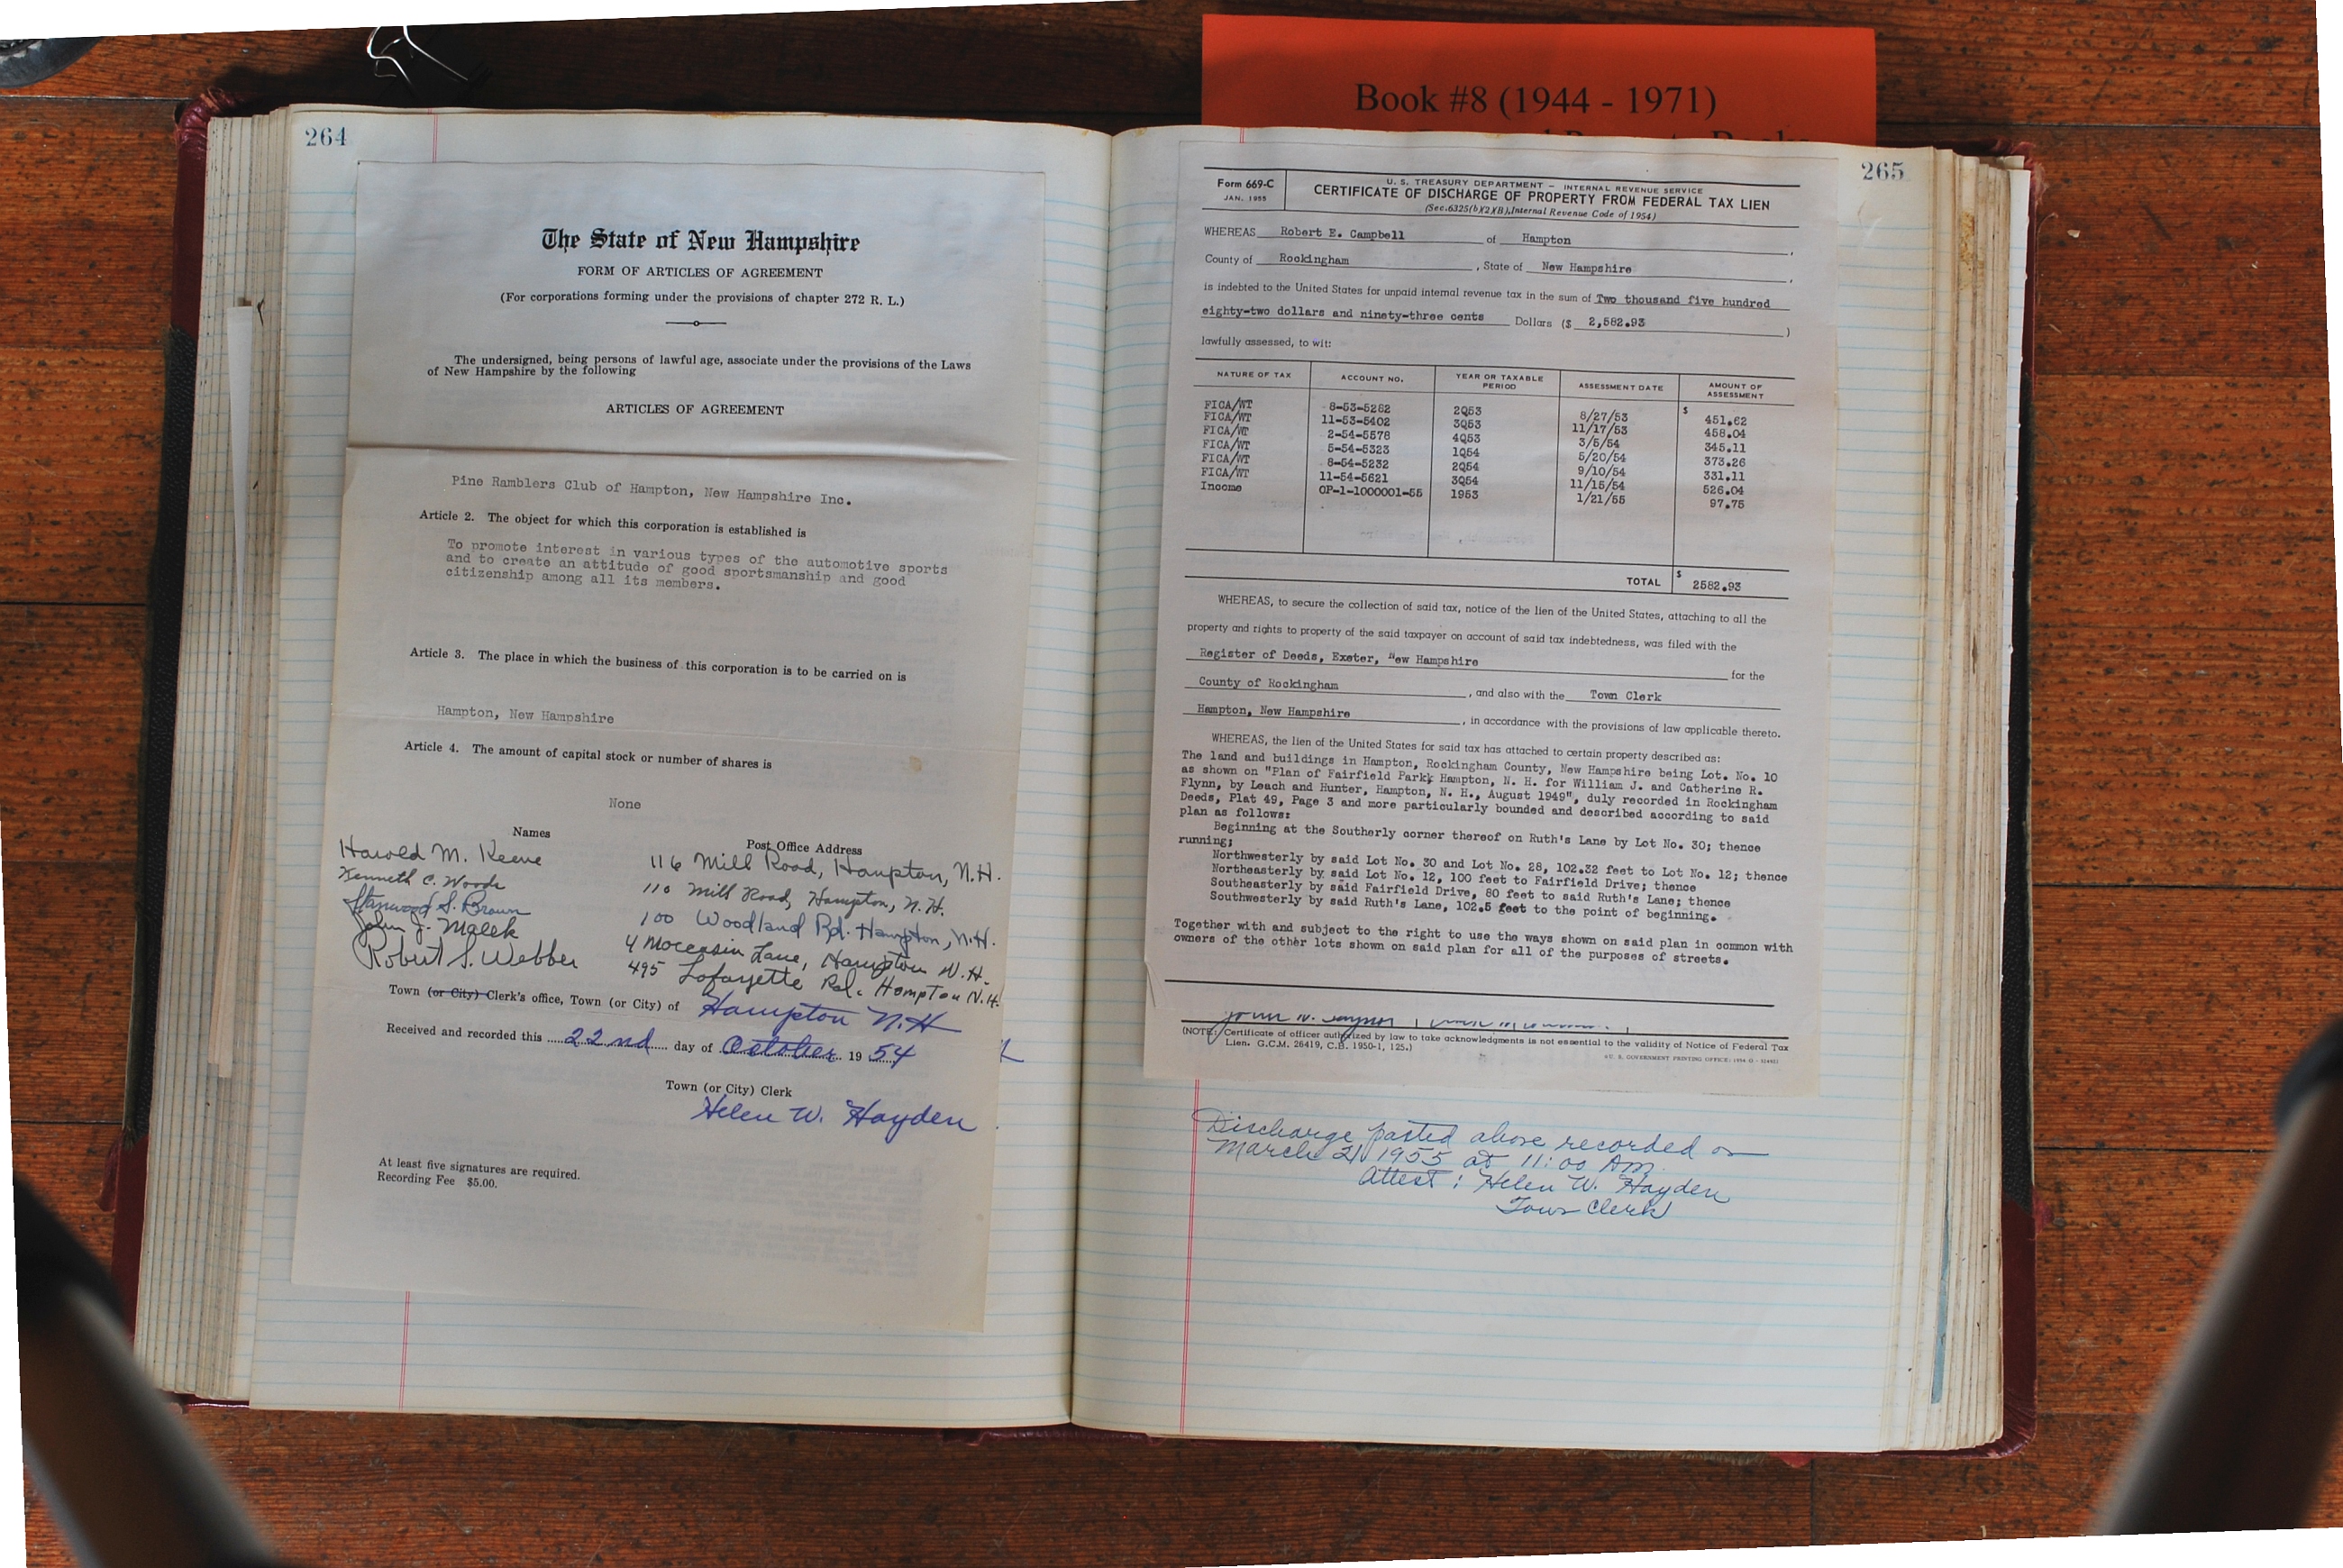 Book #8 (1944 - 1971)
264
The State of New Hampshire
FORM OF ARTICLES OF AGREEMENT
(For corporations forming under the provisions of chapter 272 R. L.)
The undersigned, being persons of lawful age, associate under the provisions of the Laws
of New Hampshire by the following
ARTICLES OF AGREEMENT
Pine Ramblers Club of Hampton, New Hampshire Inc.
Article 2. The object for which this corporation is established is
To promote interest in various types of the automotive sports
and to create an attitude of good sportsmanship and good
citizenship among all its members.
Article 3. The place in which the business of this corporation is to be carried on is
Hampton, New Hampshire
Article 4. The amount of capital stock or number of shares is
None
Names Post Office Address
Harold M. Keene 116 Mill Road, Hampton, N.H.
Kenneth C. Woods 110 Mill Road, Hampton, N.H.
Stanwood S. Brown 100 Woodland Rd. Hampton, N.H.
John J. Malek 4 Moccasin Lane, Hampton N.H.
Robert S. Webber 495 Lafayette Rd. Hampton N.H.
Town (or City) Clerk's office, Town (or City) of Hampton N.H
Received and recorded this 22nd day of October 19 54
Town (or City) Clerk
Helen W. Hayden
At least five signatures are required.
Recording Fee $5.00.
265
Form 669-C
JAN. 1955
U. S. TREASURY DEPARTMENT — INTERNAL REVENUE SERVICE
CERTIFICATE OF DISCHARGE OF PROPERTY FROM FEDERAL TAX LIEN
(Sec.6325(b)(2)(B),Internal Revenue Code of 1954)
WHEREAS Robert E. Campbell of Hampton,
County of Rockingham, State of New Hampshire,
is indebted to the United States for unpaid internal revenue tax in the sum of Two thousand five hundred
eighty-two dollars and ninety-three cents Dollars ($ 2,582.93 )
lawfully assessed, to wit:
NATURE OF TAX ACCOUNT NO. YEAR OR TAXABLE PERIOD ASSESSMENT DATE AMOUNT OF ASSESSMENT
FICA/WT 8-53-5282 2Q53 8/27/53 $ 451.62
FICA/WT 11-53-5402 3Q53 11/17/53 458.04
FICA/WT 2-54-5578 4Q53 3/5/54 345.11
FICA/WT 5-54-5323 1Q54 5/20/54 373.26
FICA/WT 8-54-5232 2Q54 9/10/54 331.11
FICA/WT 11-54-5621 3Q54 11/15/54 526.04
Income OP-1-1000001-55 1953 1/21/55 97.75
TOTAL $ 2582.93
WHEREAS, to secure the collection of said tax, notice of the lien of the United States, attaching to all the
property and rights to property of the said taxpayer on account of said tax indebtedness, was filed with the
Register of Deeds, Exeter, New Hampshire for the
County of Rockingham, and also with the Town Clerk
Hampton, New Hampshire, in accordance with the provisions of law applicable thereto.
WHEREAS, the lien of the United States for said tax has attached to certain property described as:
The land and buildings in Hampton, Rockingham County, New Hampshire being Lot. No. 10
as shown on "Plan of Fairfield Park, Hampton, N. H. for William J. and Catherine R.
Flynn, by Leach and Hunter, Hampton, N. H., August 1949", duly recorded in Rockingham
Deeds, Plat 49, Page 3 and more particularly bounded and described according to said
plan as follows:
Beginning at the Southerly corner thereof on Ruth's Lane by Lot No. 30; thence
running;
Northwesterly by said Lot No. 30 and Lot No. 28, 102.32 feet to Lot No. 12; thence
Northeasterly by said Lot No. 12, 100 feet to Fairfield Drive; thence
Southeasterly by said Fairfield Drive, 80 feet to said Ruth's Lane; thence
Southwesterly by said Ruth's Lane, 102.5 feet to the point of beginning.
Together with and subject to the right to use the ways shown on said plan in common with
owners of the other lots shown on said plan for all of the purposes of streets.
(NOTE: Certificate of officer authorized by law to take acknowledgments is not essential to the validity of Notice of Federal Tax
Lien. G.C.M. 26419, C.B. 1950-1, 125.)
U. S. GOVERNMENT PRINTING OFFICE: 1954 O
Discharge pasted above recorded on
March 21 1955 at 11:00 AM.
Attest: Helen W. Hayden
Town Clerk